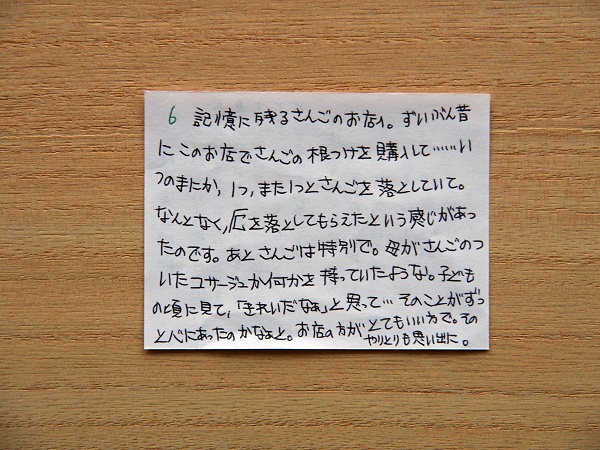 6 記憶に残るさんごのお店。ずいぶん昔
にこのお店でさんごの根つけを購入して……い
つのまにか、1つ、また1つとさんごを落としていて。
なんとなく、厄を落としてもらえたという感じがあっ
たのです。あとさんごは特別で。母がさんごのつ
いたコサージュか何かを持っていたような。子ども
の頃に見て、「きれいだなぁ」と思って…そのことがずっ
と心にあったのかなぁと。お店の方がとてもいい方で。その
やりとりも思い出に。